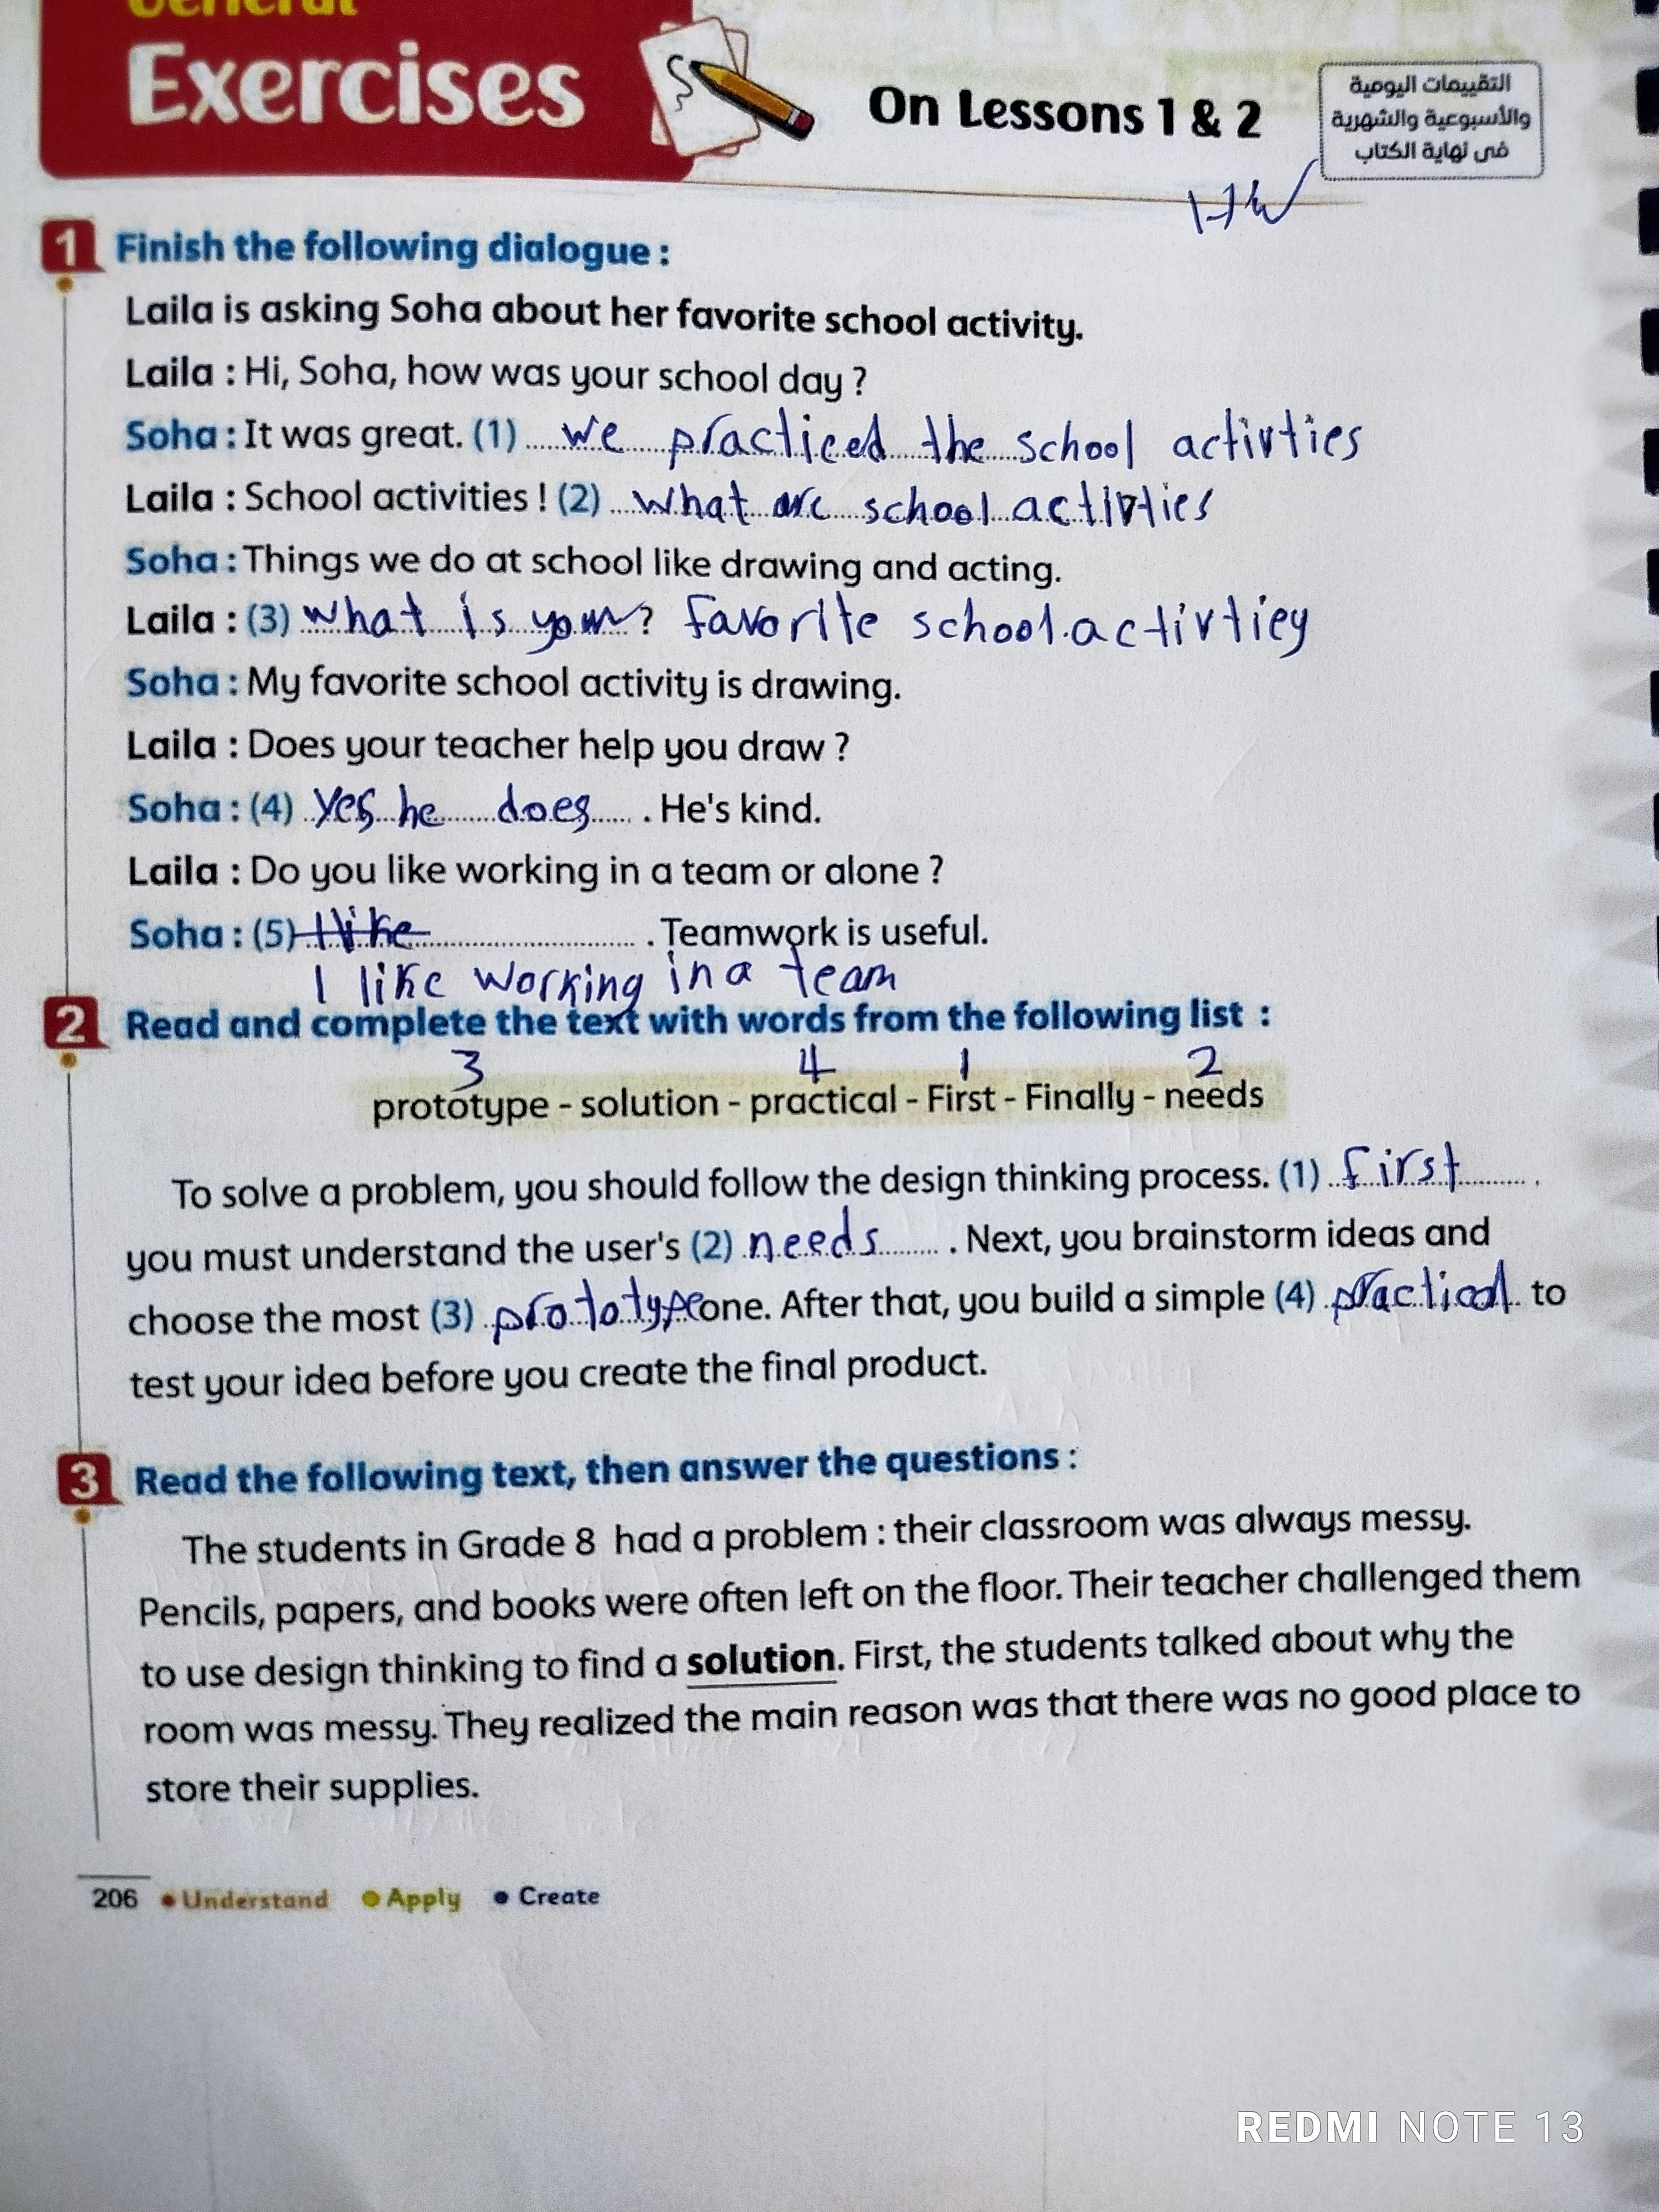 General
Exercises
On Lessons 1 & 2
التقييمات اليومية
والأسبوعية والشهرية
فى نهاية الكتاب
HW
1 Finish the following dialogue :
Laila is asking Soha about her favorite school activity.
Laila : Hi, Soha, how was your school day ?
Soha : It was great. (1) we practiced the school activties
Laila : School activities ! (2) what are school activties
Soha : Things we do at school like drawing and acting.
Laila : (3) what is your ? favorite school activtiey
Soha : My favorite school activity is drawing.
Laila : Does your teacher help you draw ?
Soha : (4) yes he does . He's kind.
Laila : Do you like working in a team or alone ?
Soha : (5) I like . Teamwork is useful.
I like working in a team
2 Read and complete the text with words from the following list :
3 4 1 2
prototype - solution - practical - First - Finally - needs
To solve a problem, you should follow the design thinking process. (1) first .
you must understand the user's (2) needs . Next, you brainstorm ideas and
choose the most (3) prototype one. After that, you build a simple (4) practical to
test your idea before you create the final product.
3 Read the following text, then answer the questions :
The students in Grade 8 had a problem : their classroom was always messy.
Pencils, papers, and books were often left on the floor. Their teacher challenged them
to use design thinking to find a solution. First, the students talked about why the
room was messy. They realized the main reason was that there was no good place to
store their supplies.
206 • Understand • Apply • Create
REDMI NOTE 13